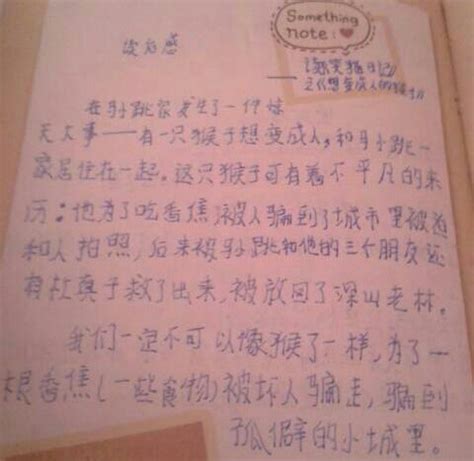 Something
note:
读后感
——读《笑猫日记》
之《想变成人的猴子》
在马小跳家发生了一件惊
天大事——有一只猴子想变成人,和马小跳一
家居住在一起。这只猴子可有着不平凡的来
历:他为了吃香蕉,被人骗到了城市里被迫
和人拍照,后来被马小跳和他的三个朋友还
有杜真子救了出来,被放回了深山老林。
我们一定不可以像猴子一样,为了一
根香蕉(一些食物)被坏人骗走,骗到
孤僻的小城里。